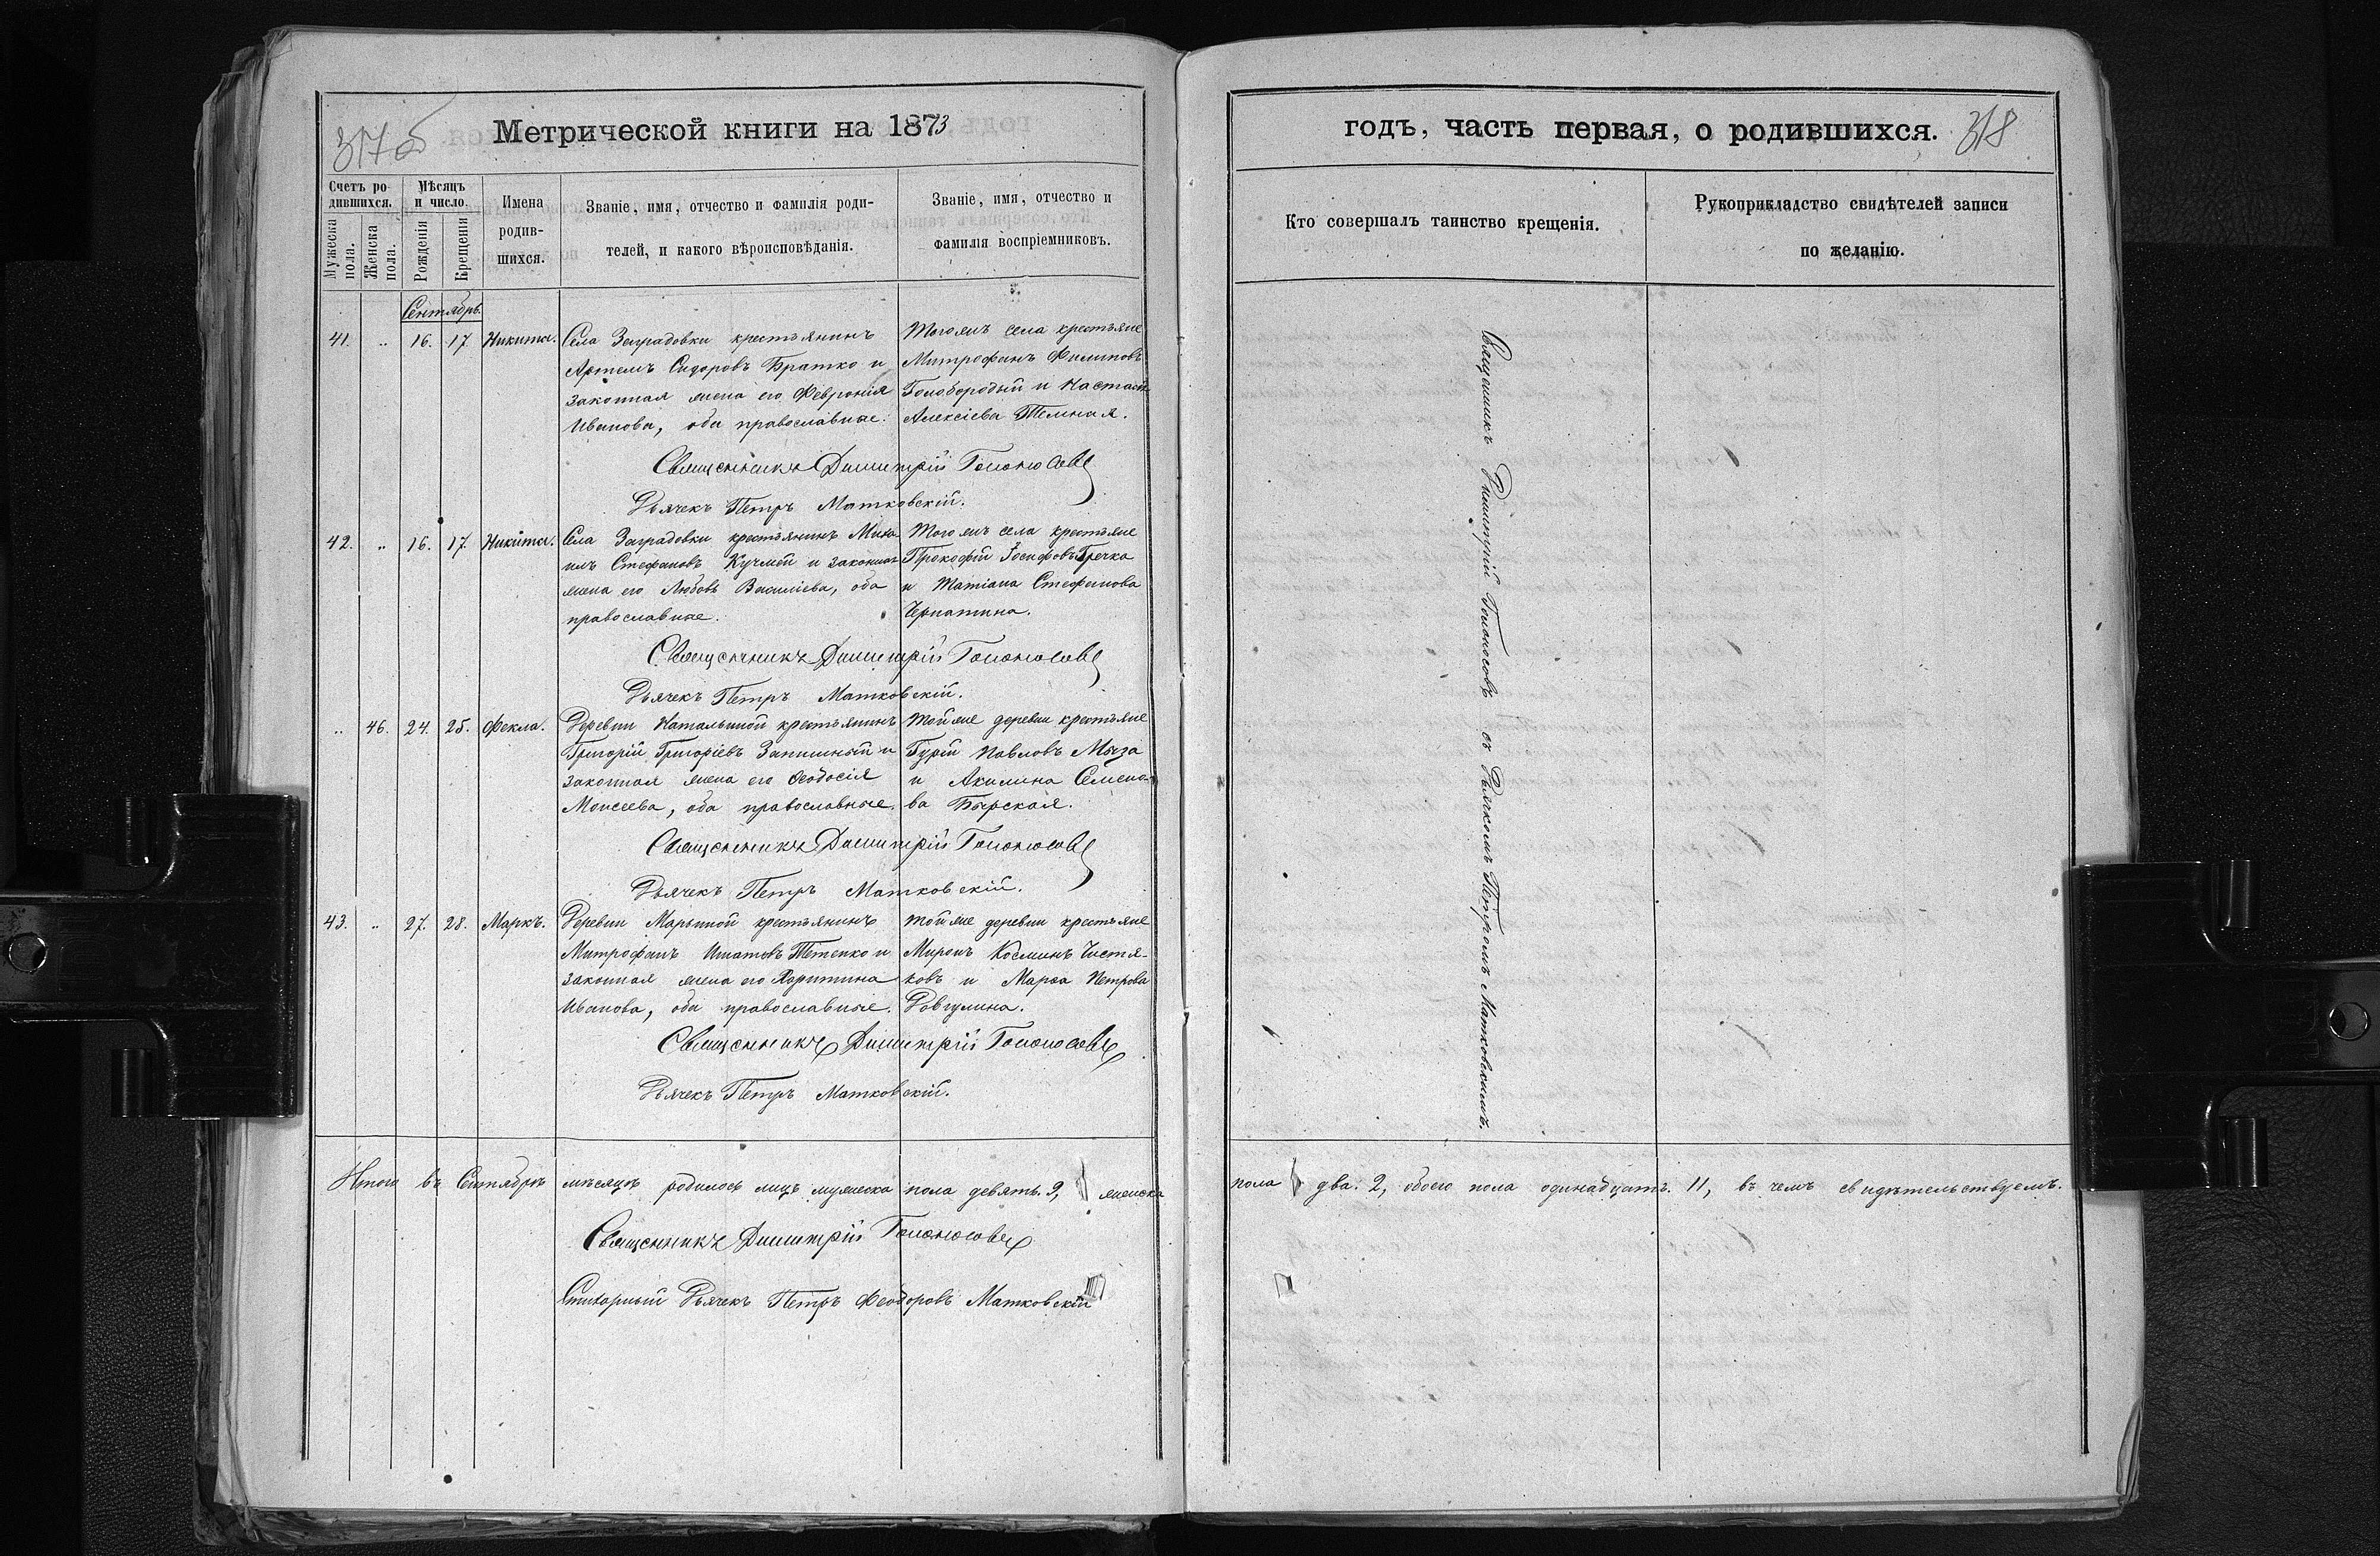 317 б
Метрической книги на 1873
Счетъ ро-
дившихся.
Мужеска пола.
Женска пола.
Мѣсяцъ
и число.
Рожденія
Крещенія
Имена
родив-
шихся.
Званіе, имя, отчество и фамилія роди-
телей, и какого вѣроисповѣданія.
Званіе, имя, отчество и
фамилія воспріемниковъ.
Сентябрь.
41. „ 16. 17. Никита.
Села Заградовки крестьянинъ
Артемъ Сидоровъ Братко и
законная жена его Феврония
Иванова, оба православные.
Того жъ села крестьяне
Митрофанъ Филиповъ
Голобородый и Настасія
Алексіева Темная.
Священникъ Димитрій Голоносовъ
Дьячекъ Петръ Матковскій.
42. „ 16. 17. Никита.
Села Заградовки крестьянинъ Миха
илъ Стефановъ Кучмей и законная
жена его Любовь Василіева, оба
православные.
Того жъ села крестьяне
Прокофій Іосифовъ Гречка
и Татіана Стефанова
Черпатина.
Священникъ Димитрій Голоносовъ
Дьячекъ Петръ Матковскій.
„ 46. 24. 25. Фекла.
Деревни Натальиной крестьянинъ
Григорій Григоріевъ Запишный и
законная жена его Ѳеодосія
Моисеева, оба православные.
Той же деревни крестьяне
Гурій Павловъ Мыза
и Акилина Семено-
ва Бырская.
Священникъ Димитрій Голоносовъ
Дьячекъ Петръ Матковскій.
43. „ 27. 28. Маркъ.
Деревни Марьиной крестьянинъ
Митрофанъ Игнатовъ Тетенко и
законная жена его Харитина
Иванова, оба православные.
Той же деревни крестьяне
Миронъ Косминъ Чистя-
ковъ и Марѳа Петрова
Довгулина.
Священникъ Димитрій Голоносовъ
Дьячекъ Петръ Матковскій.
Итого въ Сентябрѣ мѣсяцѣ родилось лицъ мужеска пола девять. 9, женска
Священникъ Димитрій Голоносовъ
Стихарный Дьячекъ Петръ Феодоровъ Матковскій
годъ, часть первая, о родившихся.
318
Кто совершалъ таинство крещенія.
Рукоприкладство свидѣтелей записи
по желанію.
Священникъ Димитрій Голоносовъ съ Дьячкомъ Петромъ Матковскимъ.
пола два. 2, обоего пола одинадцать. 11, въ чемъ свидѣтельствуемъ.